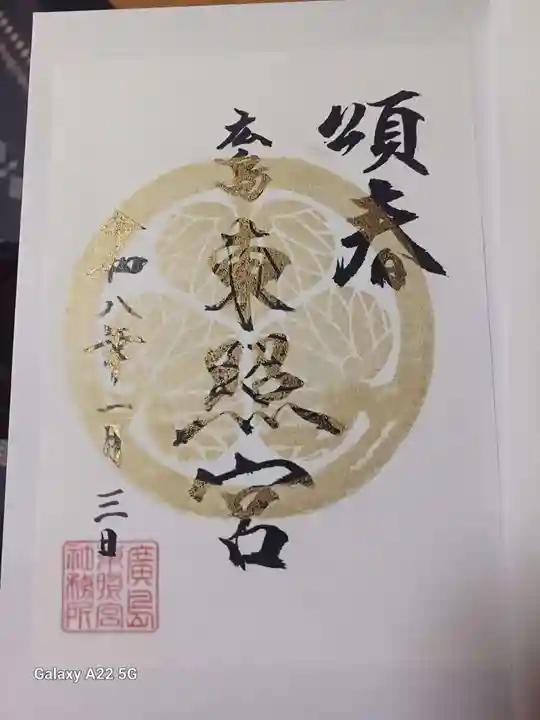 頌春
広島
東照宮
令和八年一月三日
廣島
東照宮
社務所
Galaxy A22 5G